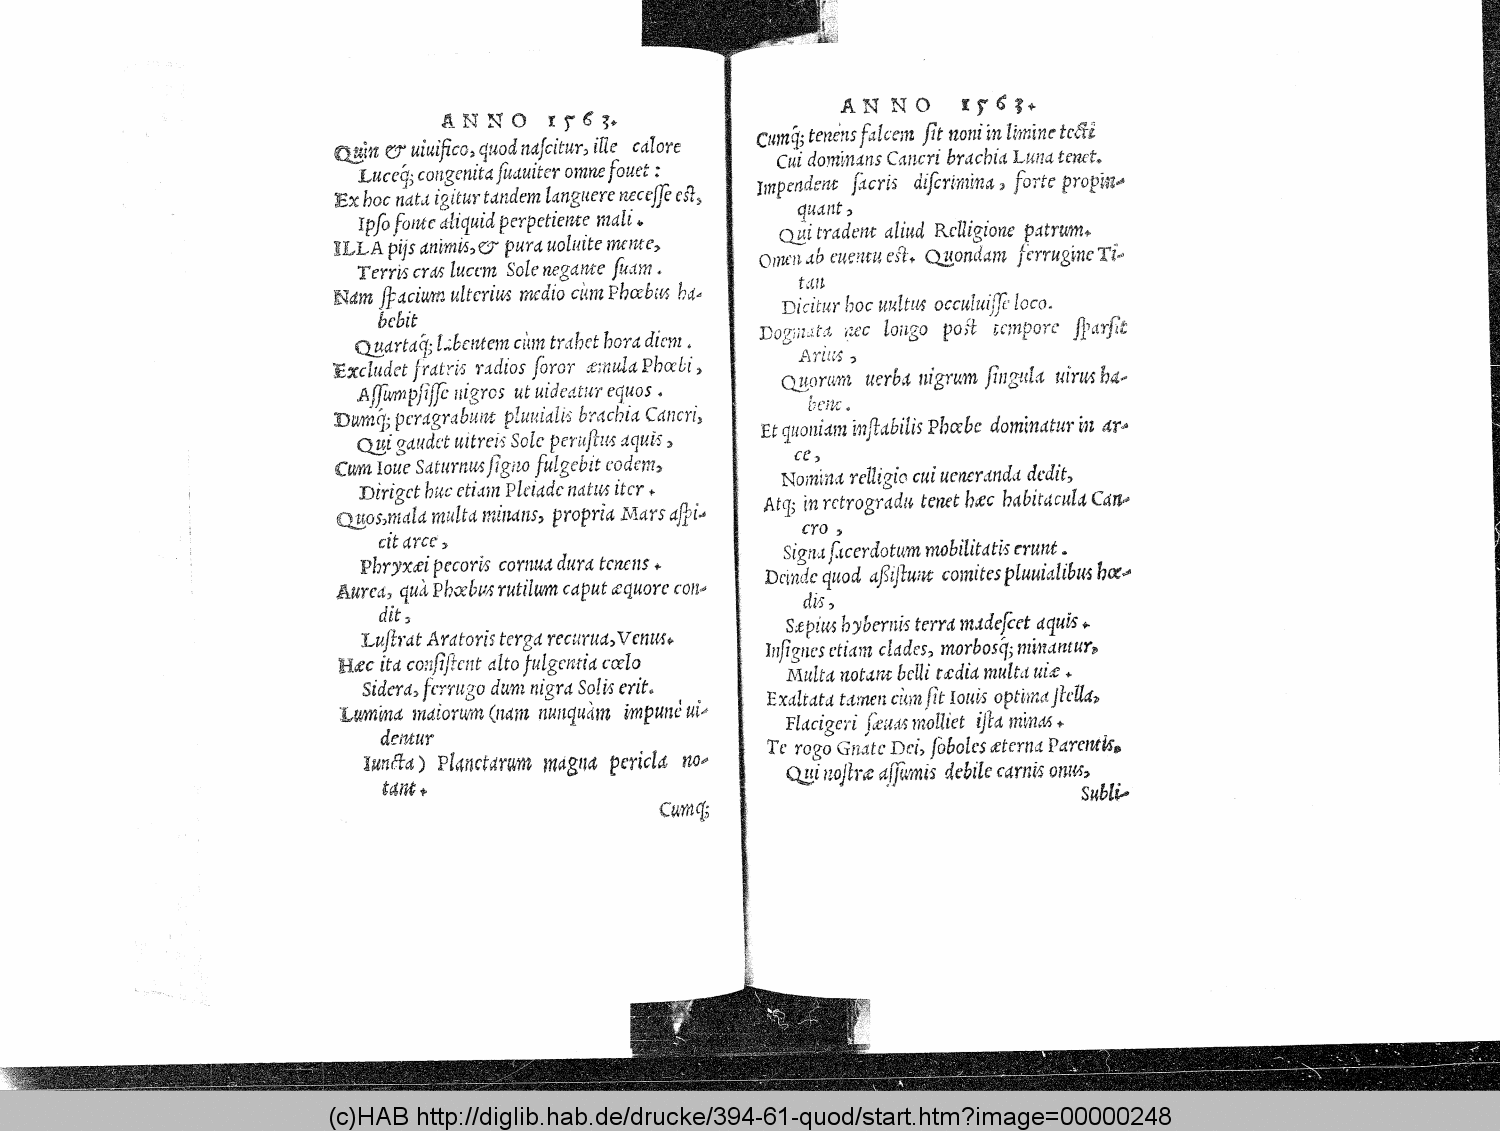 ANNO 1563.
Quin & uiuifico, quod naſcitur, ille calore
Luceq́; congenita ſuauiter omne fouet:
Ex hoc nata igitur tandem languere neceſſe eſt,
Ipſo fonte aliquid perpetiente mali.
ILLA pijs animis, & pura uoluite mente,
Terris cras lucem Sole negante ſuam.
Nam ſpacium ulterius medio cùm Phœbus ha-
bebit
Quartaq́; labentem cùm trahet hora diem.
Excludet fratris radios ſoror æmula Phœbi,
Aſſumpſiſſe nigros ut uideatur equos.
Dumq́; peragrabunt pluuialis brachia Cancri,
Qui gaudet uitreis Sole peruſtus aquis,
Cum Ioue Saturnus ſigno fulgebit eodem,
Diriget huc etiam Pleiade natus iter.
Quos, mala multa minans, propria Mars aſpi-
cit arce,
Phryxæi pecoris cornua dura tenens.
Aurea, quà Phœbus rutilum caput æquore con-
dit,
Luſtrat Aratoris terga recurua, Venus.
Hæc ita conſiſtent alto fulgentia cœlo
Sidera, ferrugo dum nigra Solis erit.
Lumina maiorum (nam nunquàm impunè ui-
dentur
Iuncta) Planetarum magna pericla no-
tant.
Cumq́;
ANNO 1563.
Cumq́; tenens falcem ſit noni in limine tecti
Cui dominans Cancri brachia Luna tenet.
Impendent ſacris diſcrimina, forte propin-
quant,
Qui tradent aliud Relligione patrum.
Omen ab euentu eſt. Quondam ferrugine Ti-
tan
Dicitur hoc uultus occuluiſſe loco.
Dogmata nec longo poſt tempore ſparſit
Arius,
Quorum uerba nigrum ſingula uirus ha-
bent.
Et quoniam inſtabilis Phœbe dominatur in ar-
ce,
Nomina relligio cui ueneranda dedit,
Atq; in retrogradu tenet hæc habitacula Can-
cro,
Signa ſacerdotum mobilitatis erunt.
Deinde quod aßiſtunt comites pluuialibus hœ-
dis,
Sæpius hybernis terra madeſcet aquis.
Inſignes etiam clades, morbosq́; minantur,
Multa notant belli tædia multa uiæ.
Exaltata tamen cùm ſit Iouis optima ſtella,
Flacigeri ſæuas molliet iſta minas.
Te rogo Gnate Dei, ſoboles æterna Parentis,
Qui noſtræ aſſumis debile carnis onus,
Subli-
(c)HAB http://diglib.hab.de/drucke/394-61-quod/start.htm?image=00000248